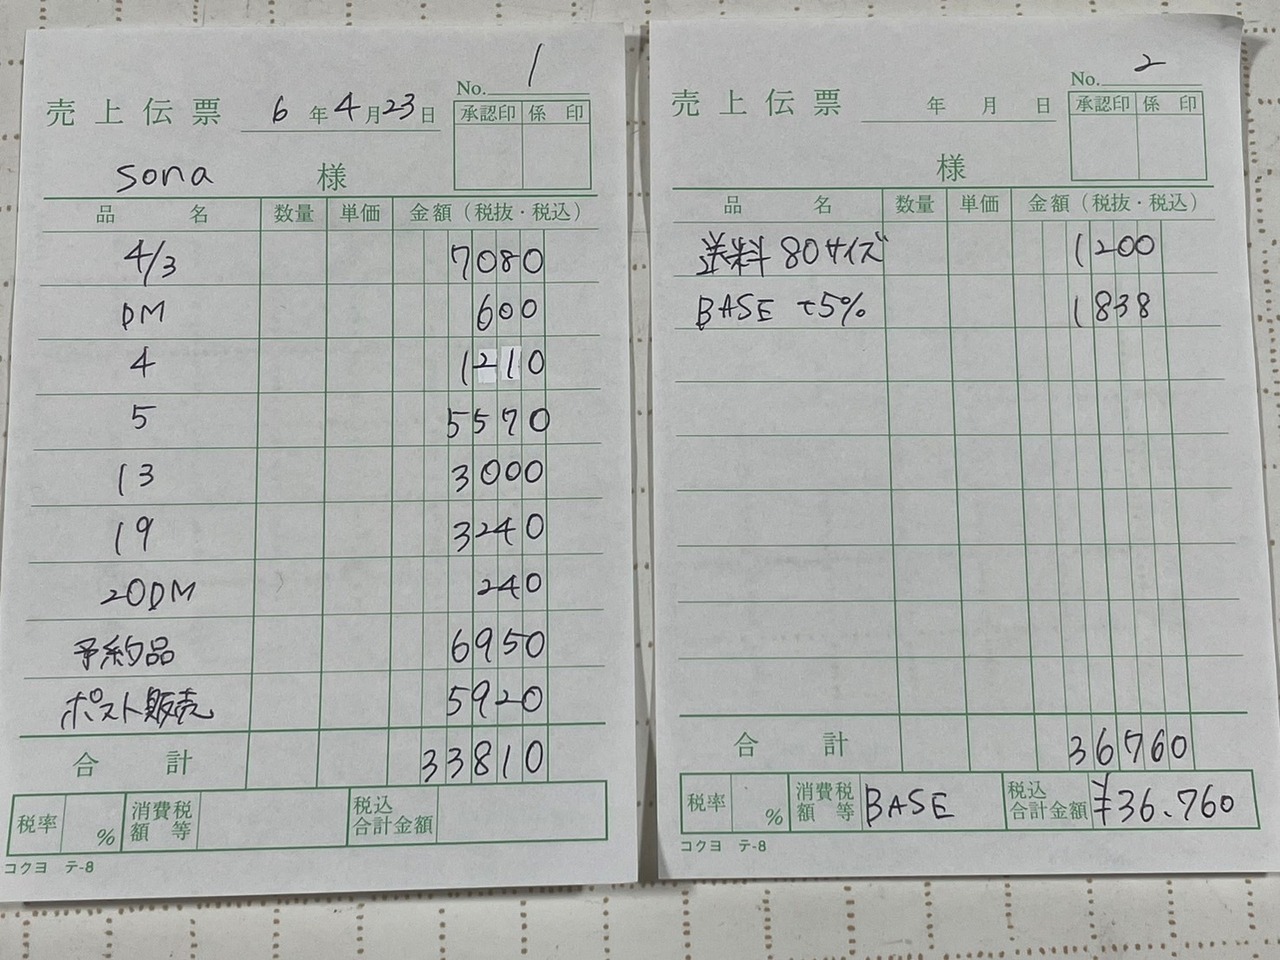 No. 1
売上伝票 6年4月23日
承認印 係印
sona 様
品名 数量 単価 金額（税抜・税込）
4/3 7080
DM 600
4 1210
5 5570
13 3000
19 3240
20DM 240
予約品 6950
ポスト販売 5920
合計 33810
税率 % 消費税額等 税込合計金額
コクヨ テ-8
No. 2
売上伝票 年 月 日
承認印 係印
様
品名 数量 単価 金額（税抜・税込）
送料 80サイズ 1200
BASE +5% 1838
合計 36760
税率 % 消費税額等 BASE 税込合計金額 ¥36.760
コクヨ テ-8